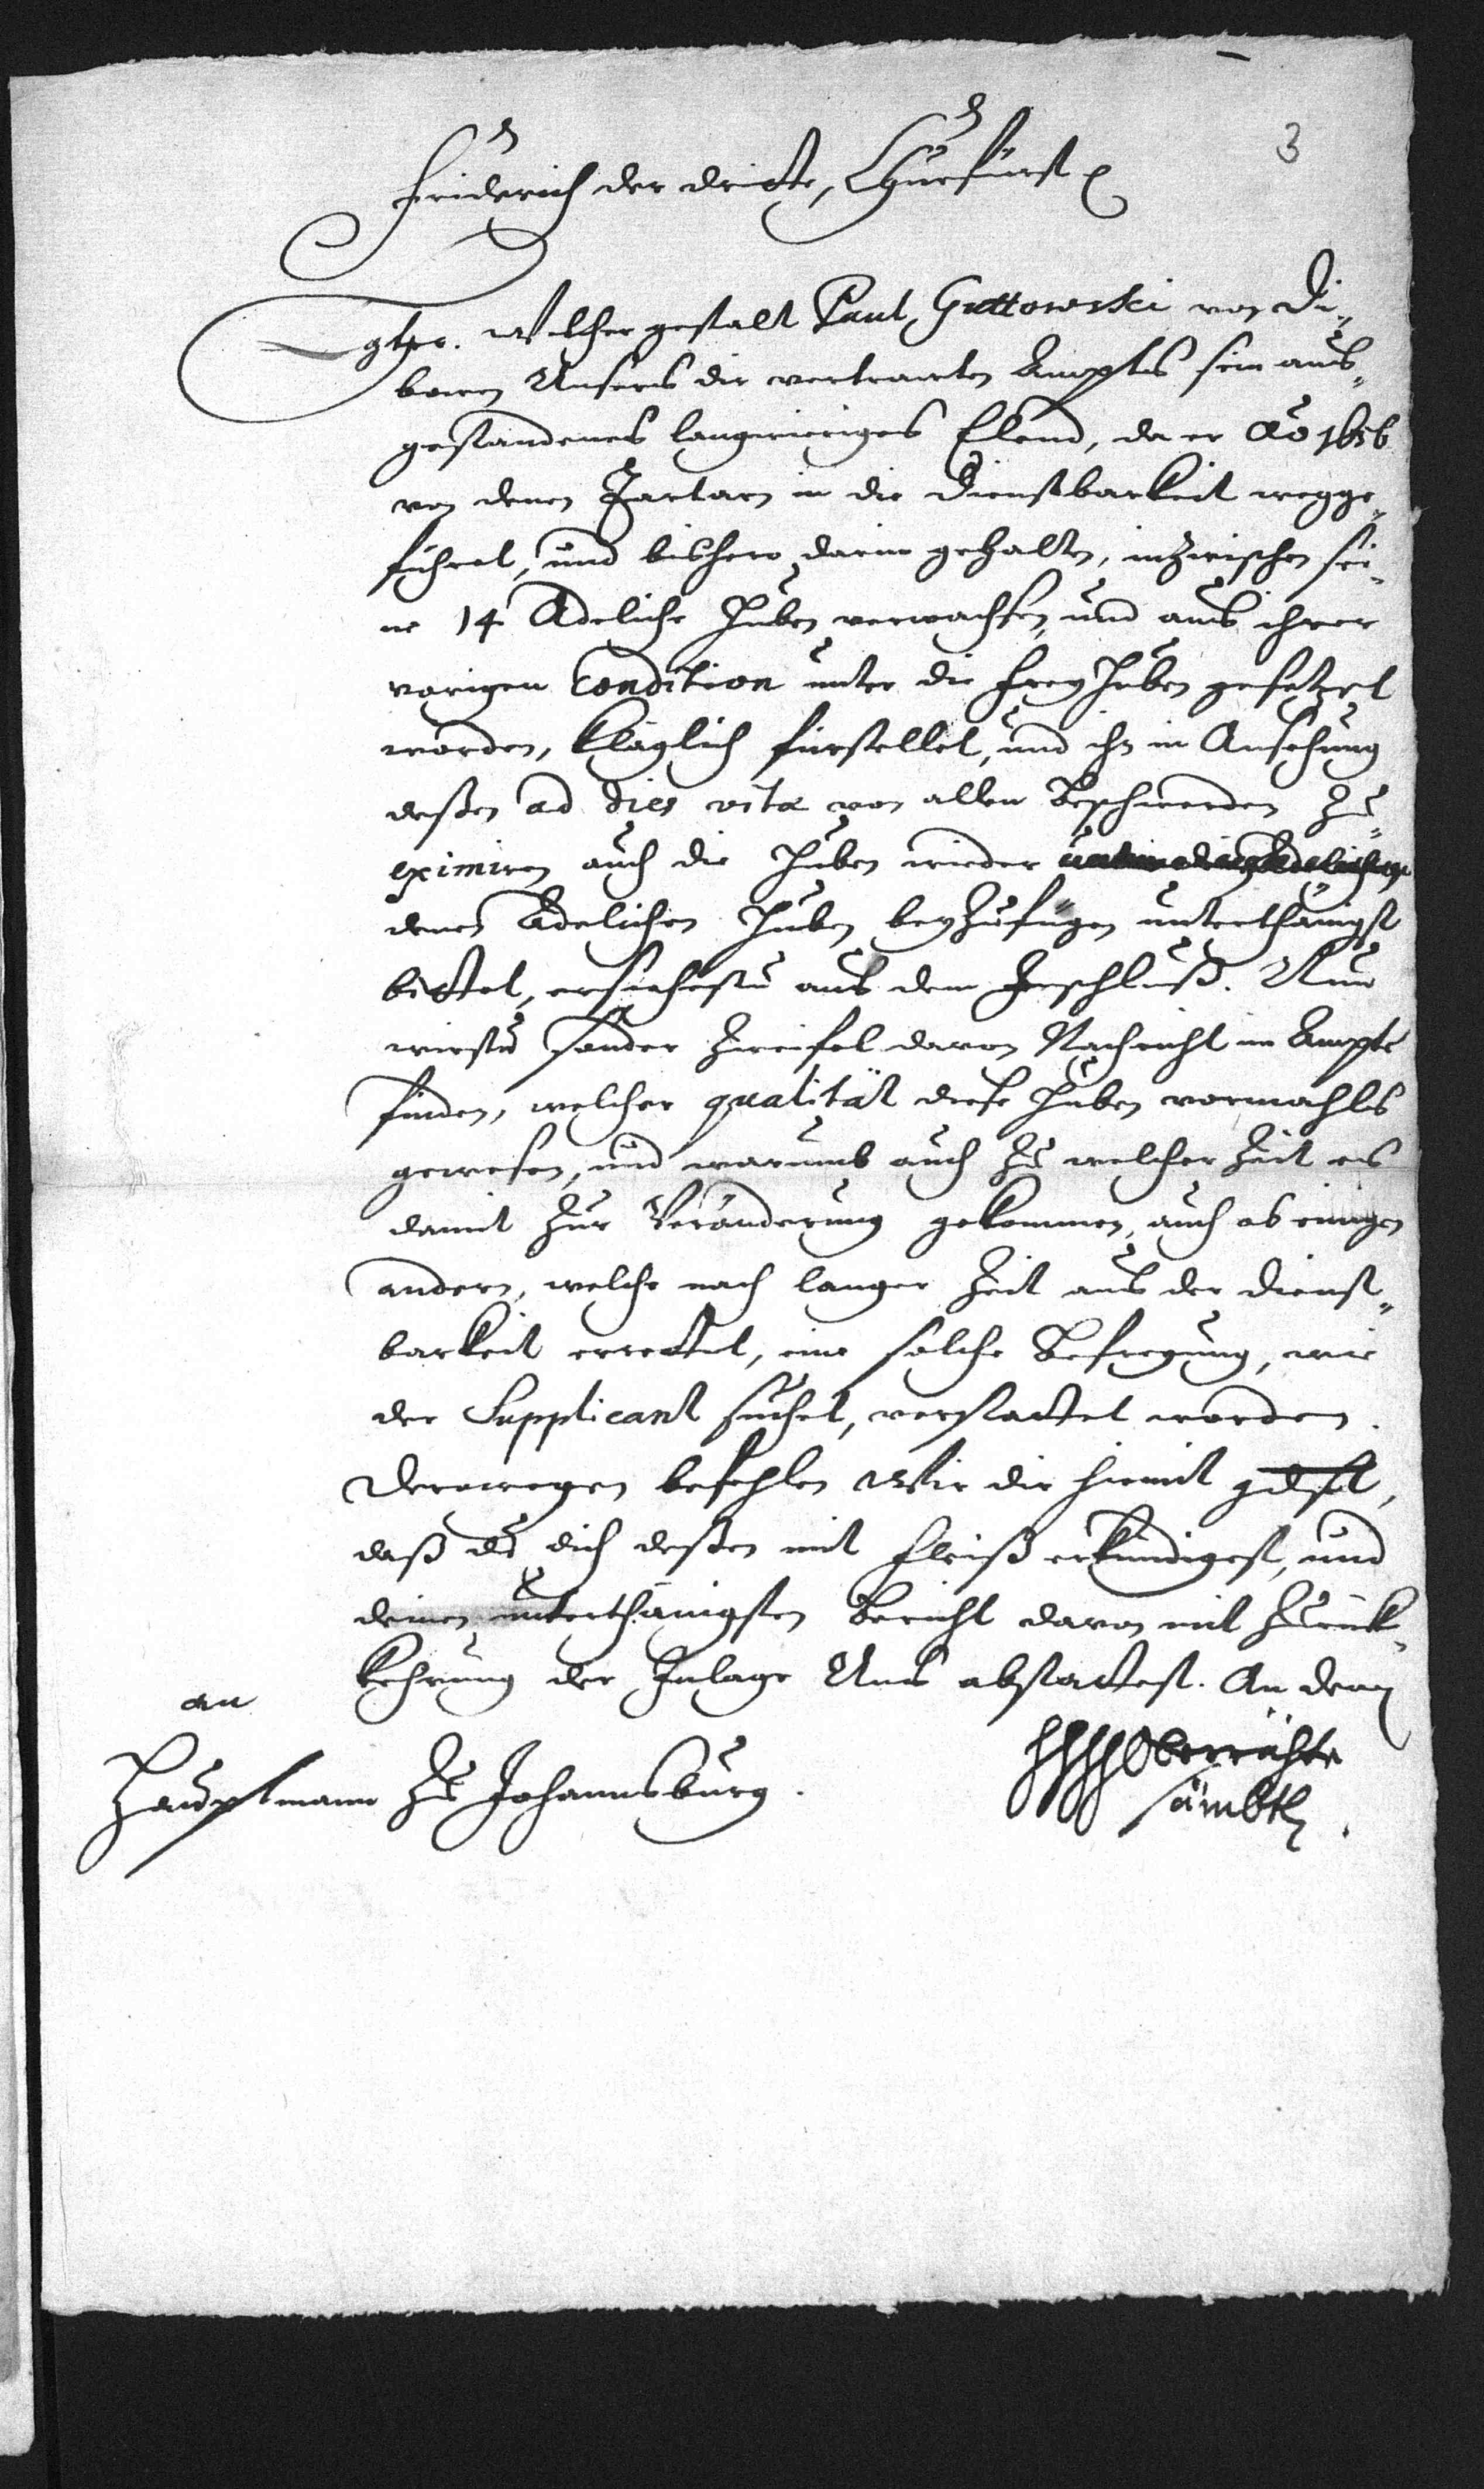 3
Friderich der dritte, Churfürst
gtr. Welchergestalt Paul Guttowski von Di-
bowen Unsers dir vertraweten Ampts sein aus-
gestandenes langwieriges Elend, da er Ao 1656
von denen Tartarn in die Dienstbarkeit wegge-
führet, und bishero darin gehalten, inzwischen sei-
ne 14 Adeliche Huben verwachsen, und aus ihrer
vorigen Condition unter die frey Huben gesetzet
worden, kläglich fürstellet, und ihn in Ansehung
deßen ad dies vitæ von allen Beschwerden zu
eximiren auch die Huben wieder
denen Adelichen Huben beyzufügen unterthänigst
bittet, ersiehestu aus dem Inschluß. Nun
wirstu sonder Zweifel davon Nachricht im Ampte
finden, welcher qualität diese Huben vormahls
gewesen, und warumb auch zu welcher Zeit es
damit zur Veränderung gekommen, auch ob einigen
andern, welche nach langer Zeit aus der Dienst-
barkeit errettet, eine solche Befreyung, wie
der Supplicant suchet, verstattet worden.
Derowegen befehlen Wir dir hiemit gdst,
daß du dich deßen mit Fleiß erkundigest, und
deinen unterthänigsten Bericht davon mit Zurück-
kehrung der Inlage Uns abstattest. An dem
an
Hauptmann zu Johannsburg.
HHHH Oberräthe
sämbtl.